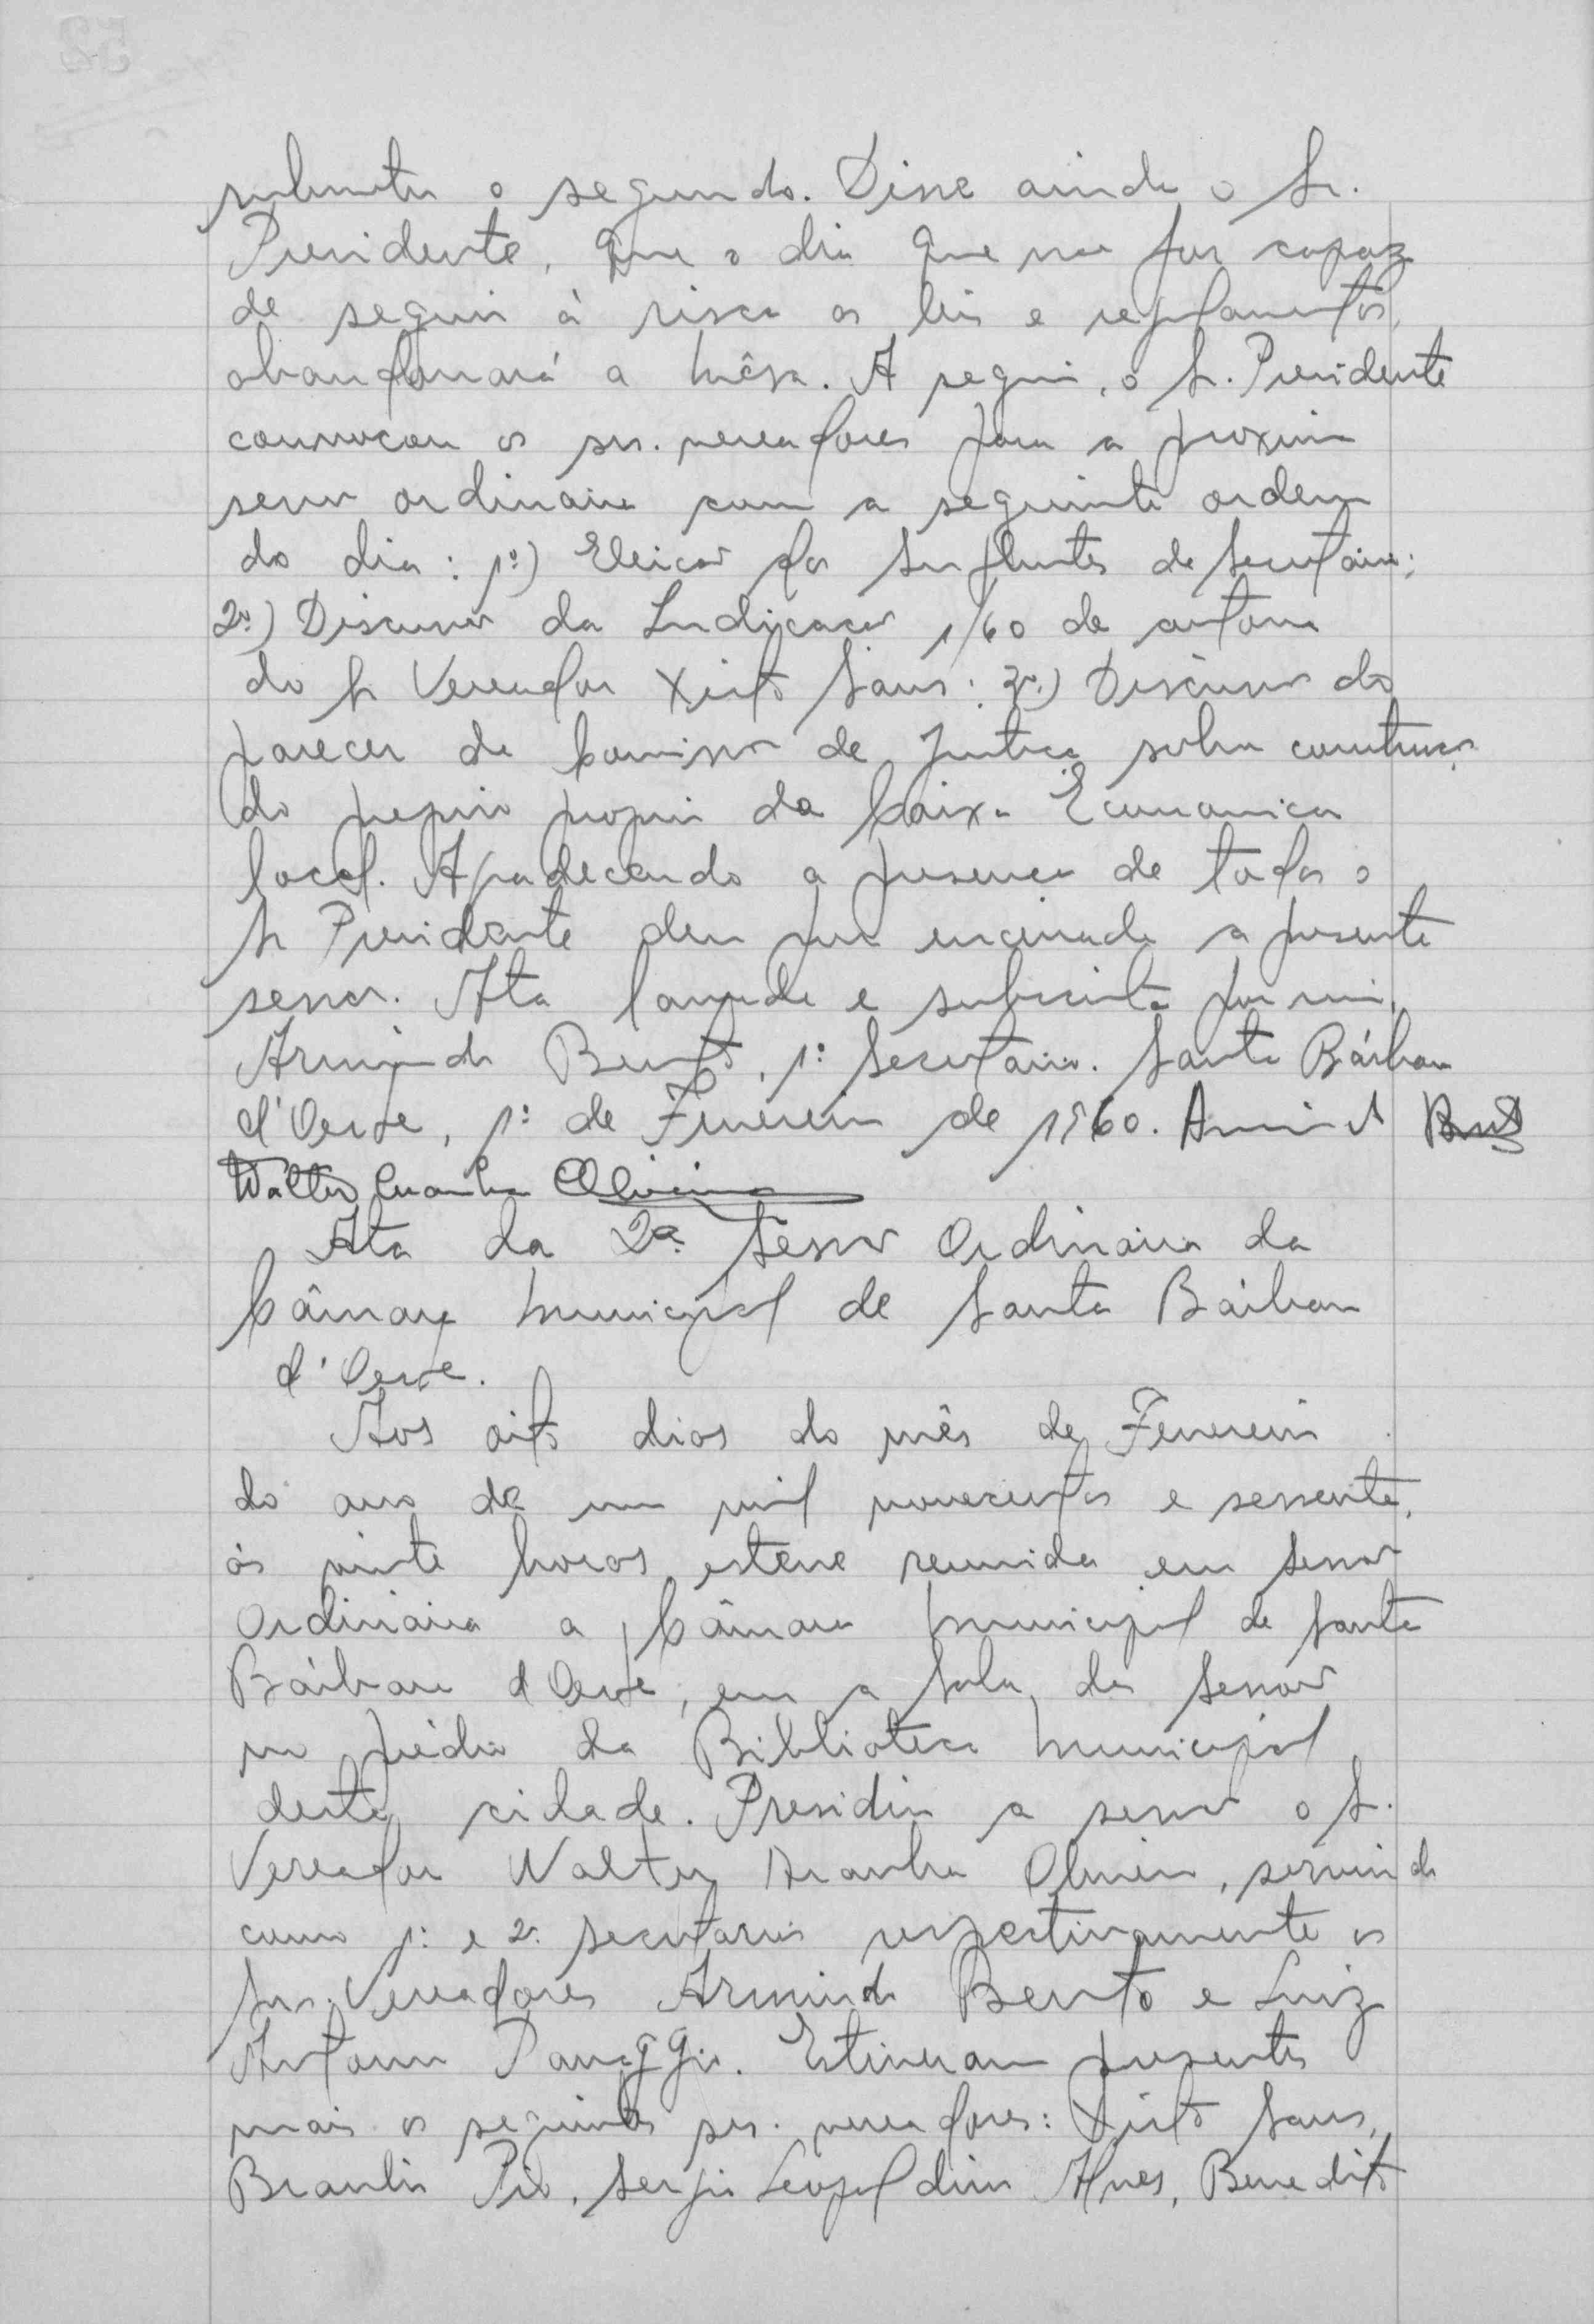 submeteu o segundo. Disse ainda o Sr.
Presidente, que o dia que não for capaz
de seguir à risca as leis e regulamentos,
abandonará a Mêsa. A seguir, o Sr. Presidente
convocou os srs. vereadores para a proxima
sessão ordinaria com a seguinte ordem
do dia: 1º) Eleição dos Suplentes de Secretario;
2º) Discussão da Indicação 1/60 de autoria
do Sr Vereador Xisto Sans; 3º) Discussão do
parecer da Comissão de Justiça sobre construção
do predio proprio da Caixa Economica
local. Agradecendo a presença de todos o
Sr Presidente deu por encerrada a presente
sessão. Ata lavrada e subscrita por mim,
Armindo Bento, 1º Secretario. Santa Bárbara
d'Oeste, 1º de Fevereiro de 1960. Armindo Bento
Walter Aranha Oliveira
Ata da 2ª Sessão Ordinaria da
Câmara Municipal de Santa Bárbara
d'Oeste.
Aos oito dias do mês de Fevereiro
do ano de um mil novecentos e sessenta,
ás vinte horas esteve reunida em Sessão
Ordinária a Câmara Municipal de Santa
Bárbara d'Oeste, em a Sala de Sessões
no prédio da Biblioteca Municipal
desta cidade. Presidiu a sessão o Sr.
Vereador Walter Aranha Oliveira, servindo
como 1º e 2º secretarios respectivamente os
Srs. Vereadores Armindo Bento e Luiz
Antonio Panaggio. Estiveram presentes
mais os seguintes srs. vereadores: Xisto Sans,
Braulio Pio, Sergio Leopoldino Alves, Benedito
52